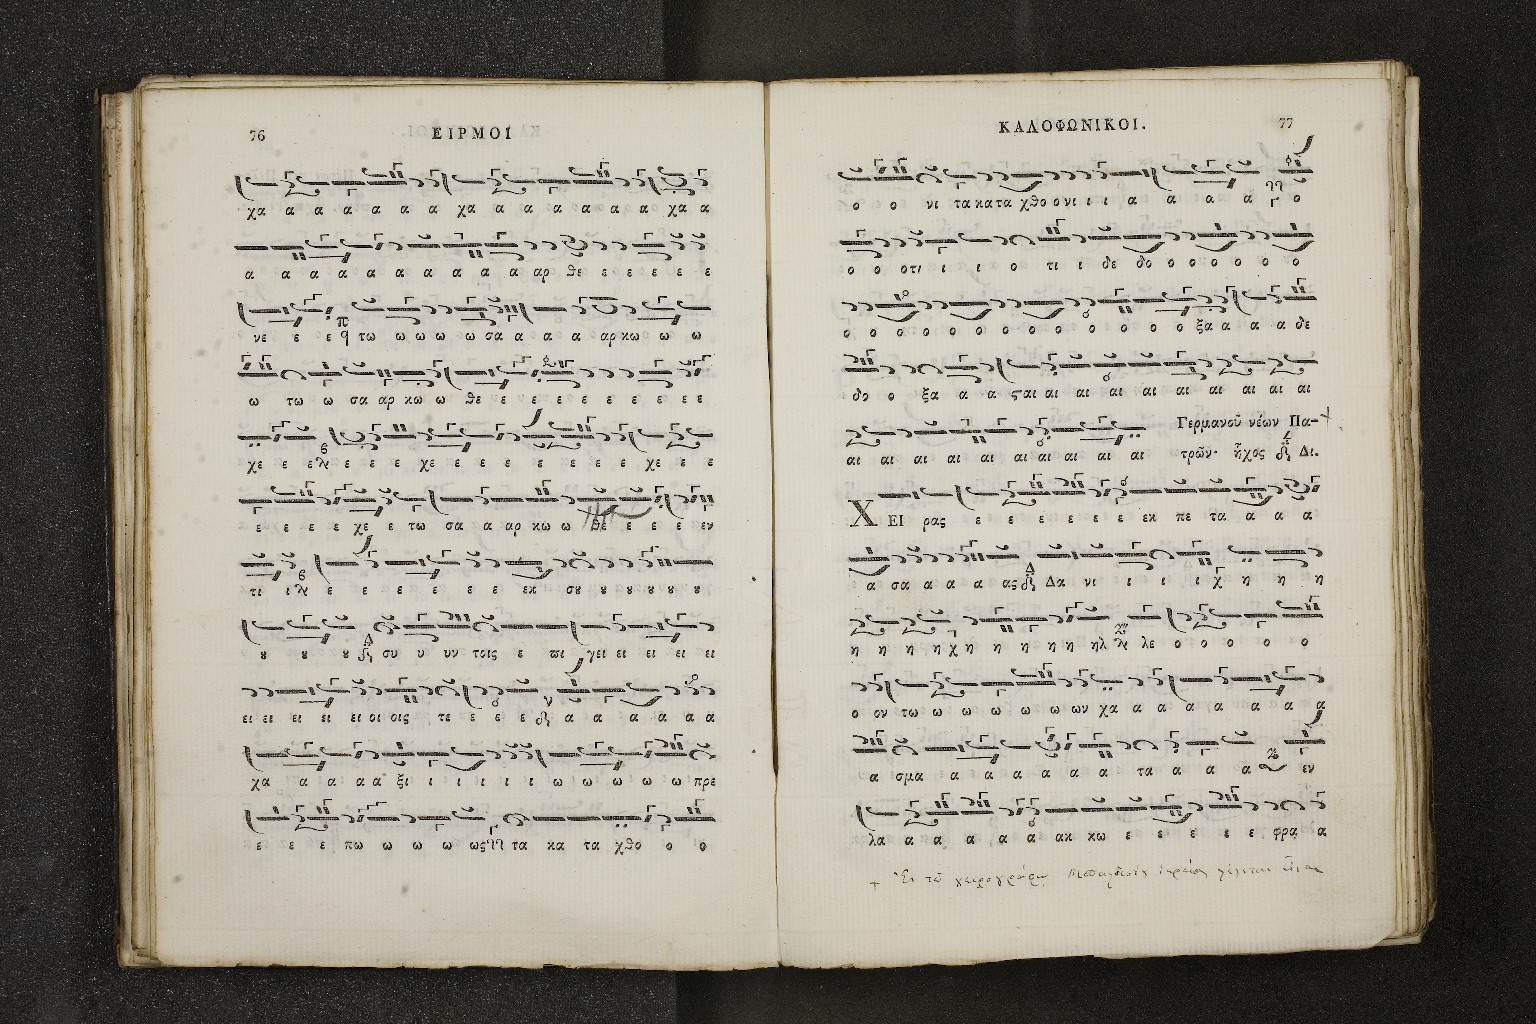 76
ΕΙΡΜΟΙ
χα α α α α α α χα α α α α α α χα α
α α α α α α α α α α αρ θε ε ε ε ε ε
νε ε ε π τω ω ω ω ω σα α α α αρ κω ω ω
ω τω ω σα αρ κω ω θε ε ε ε ε ε ε ε ε ε
χε ε ε ε ε ε χε ε ε ε ε ε ε ε χε ε ε
ε ε ε ε χε ε τω σα α αρ κω ω θε ε ε ε εν
τι ι ε ε ε ε ε ε ε εκ σȣ ȣ ȣ ȣ ȣ ȣ
ȣ ȣ ȣ Δ συ υ υν τοις ε πι γει ει ει ει ει
ει ει ει ει ει οι οις τε ε ε ε α α α α α α
χα α α α α ξι ι ι ι ι ι ω ω ω ω ω πρε
ε ε ε πω ω ω ω ως τα κα τα χθο ο ο
ΚΑΛΟΦΩΝΙΚΟΙ.
77
ο ο νι τα κα τα χθο ο νι ι ι α α α α α ο
ο ο οτι ι ι ο τι ι δε δο ο ο ο ο ο ο
ο ο ο ο ο ο ο ο ο ο ο ο ο ξα α α α δε
δο ο ξα α α ς αι αι αι αι αι αι αι αι αι αι
αι αι αι αι αι αι αι αι αι αι Γερμανοῦ νέων Πα-
τρῶν· ἦχος Δι.
ΧΕΙ ρας ε ε ε ε ε ε εκ πε τα α α α
α σα α α α ας Δ Δα νι ι ι ι ι χ η η η
η η η η χ η η η η η ηλ λε ο ο ο ο ο
ο ον τω ω ω ω ω ω ων χα α α α α α α
α σμα α α α α α α τα α α α εν
λα α α α α α ακ κω ε ε ε ε ε φρα α
+ Ἐν τῷ χειρογράφῳ